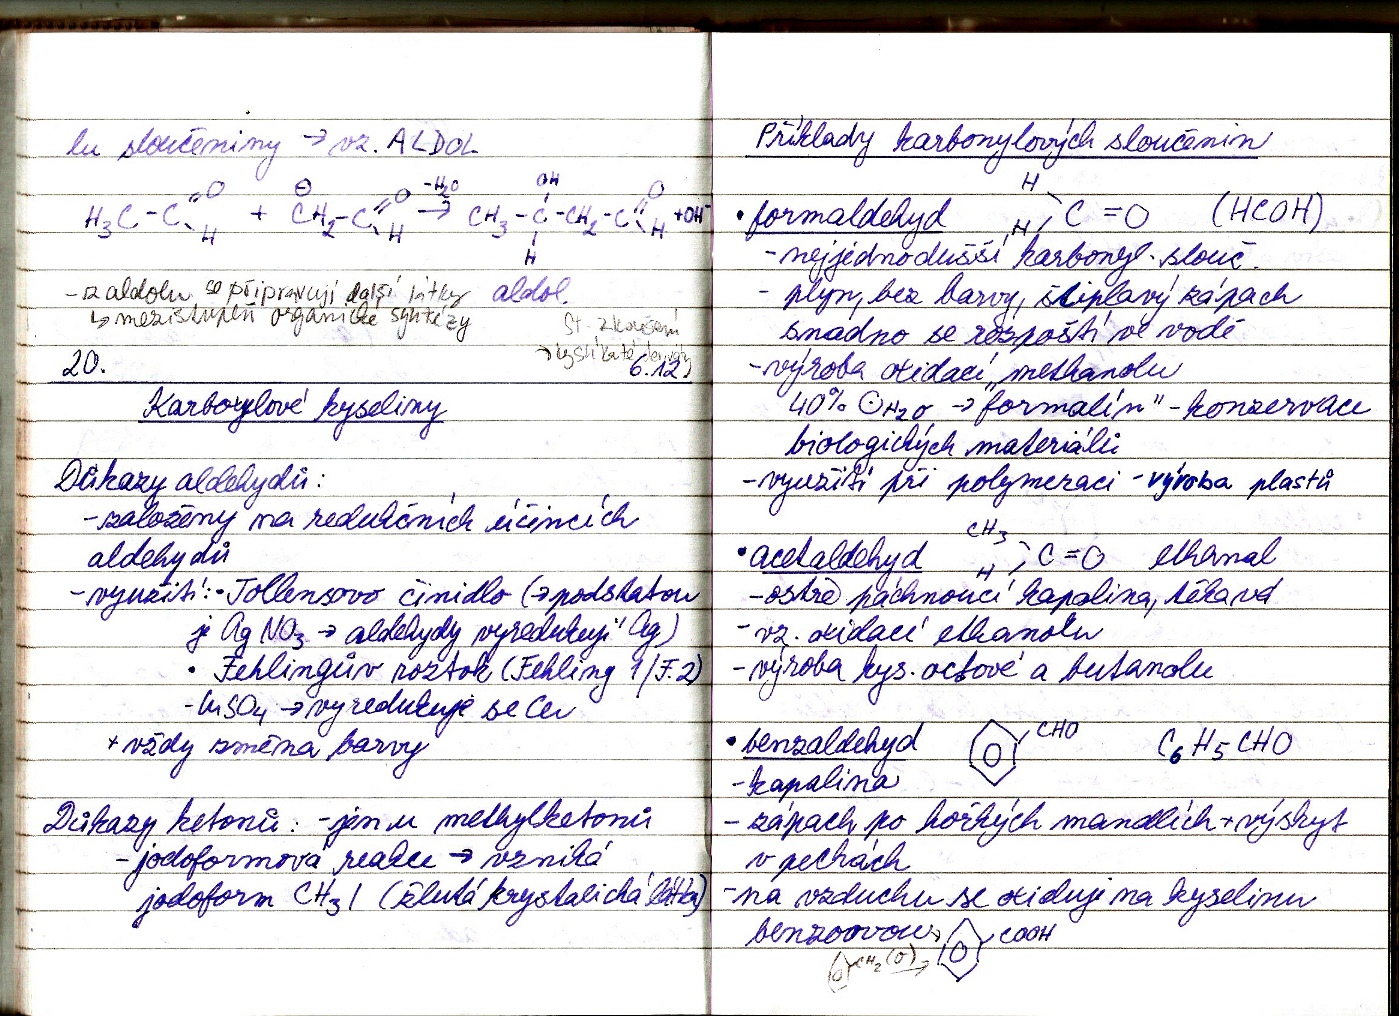 lu sloučeniny → vz. ALDOL
H₃C-C=O H + ⊖CH₂-C=O H -H₂O → CH₃-C(OH)(H)-CH₂-C=O H + OH⁻
- z aldolu se připravují další látky aldol.
↳ mezistupeň organické syntézy
St - zkoušení
→ kyslíkaté deriváty
20. 6.12.
Karboxylové kyseliny
Důkazy aldehydů:
- založeny na redukčních účincích
aldehydů
- využití: • Tollensovo činidlo (→ podstatou
je AgNO₃ → aldehydy vyredukují Ag)
• Fehlingův roztok (Fehling 1/F.2)
- CuSO₄ → vyredukuje se Cu
+ vždy změna barvy
Důkazy ketonů: - jen u methylketonů
- jodoformová reakce → vzniká
jodoform CH₃I (žlutá krystalická látka)
Příklady karbonylových sloučenin
• formaldehyd H H C=O (HCOH)
- nejjednodušší karbonyl. slouč.
- plyn, bez barvy, štiplavý zápach
snadno se rozpouští ve vodě
- výroba oxidací methanolu
40% H₂O → "formalín" - konzervace
biologických materiálů
- využití při polymeraci - výroba plastů
• acetaldehyd CH₃ H C=O ethanal
- ostře páchnoucí kapalina, těkavá
- vz. oxidací ethanolu
- výroba kys. octové a butanolu
• benzaldehyd CHO C₆H₅CHO
- kapalina
- zápach po hořkých mandlích + výskyt
v peckách
- na vzduchu se oxiduje na kyselinu
benzoovou → COOH
CH₂ (O) →